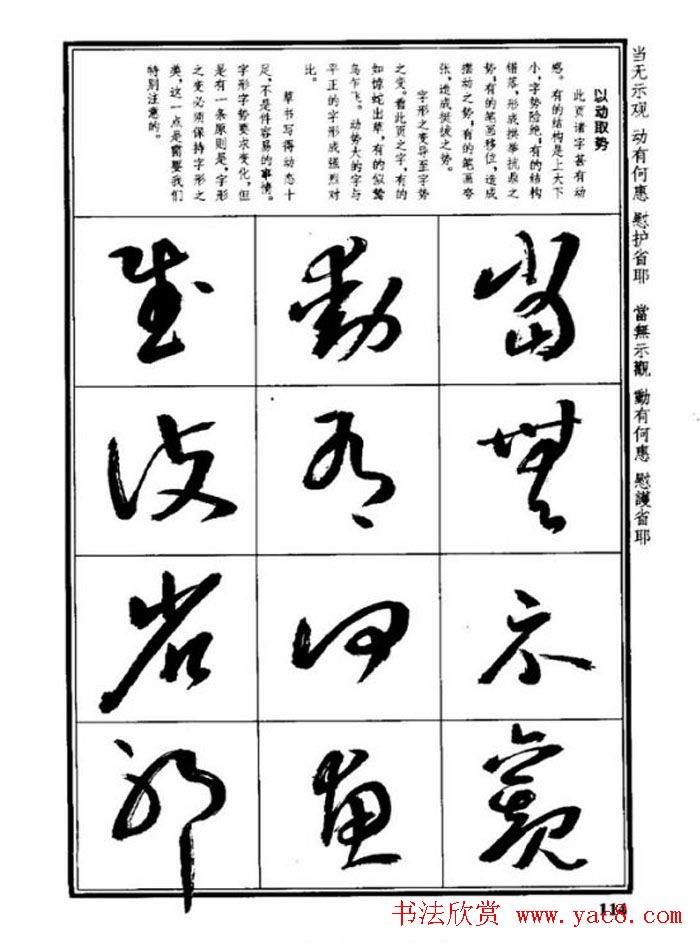 当无示观 动有何惠 慰护省耶 當無示觀 動有何惠 慰護省耶
以动取势
此页诸字甚有动
感。有的结构是上大下
小,字势险绝;有的结构
错落,形成拱举抗鼎之
势;有的笔画移位,造成
摆动之势;有的笔画夸
张,造成挺拔之势。
字形之变导至字势
之变。看此页之字,有的
如惊蛇出草,有的似鸷
鸟乍飞。动势大的字与
平正的字形成强烈对
比。
草书写得动态十
足,不是件容易的事情。
字形字势要求变化,但
是有一条原则是,字形
之变必须保持字形之
美,这一点是需要我们
特别注意的。
當無示觀
動有何惠
慰護省耶
114
书法欣赏 www.yac8.com